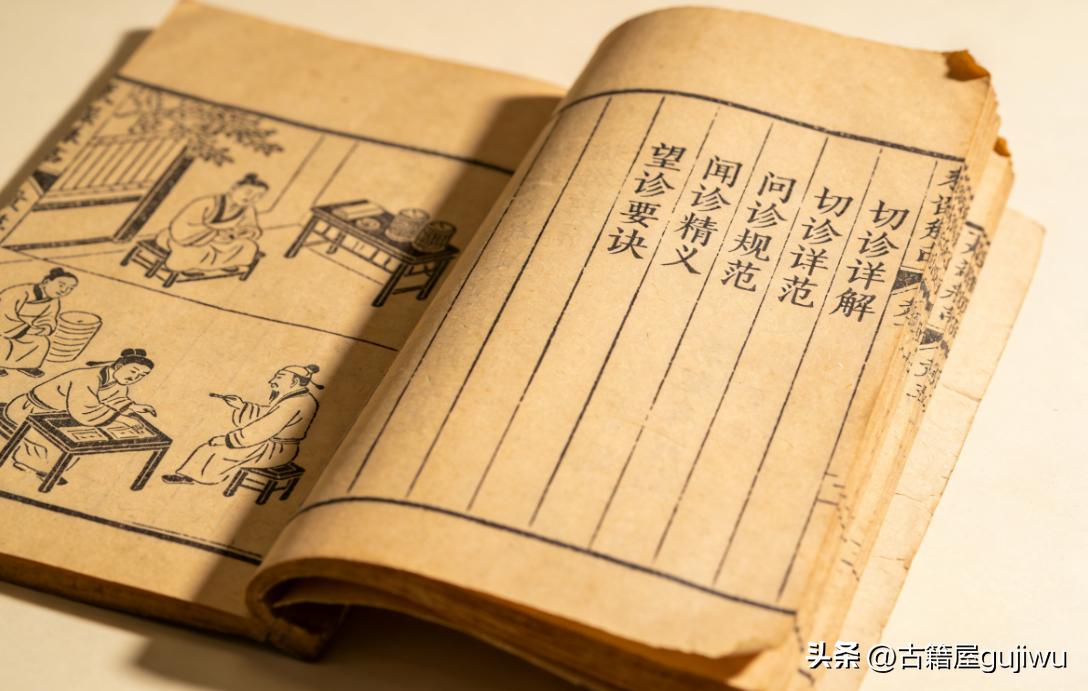 切诊详解
切诊详范
问诊规范
闻诊精义
望诊要诀
头条 @古籍屋gujiwu